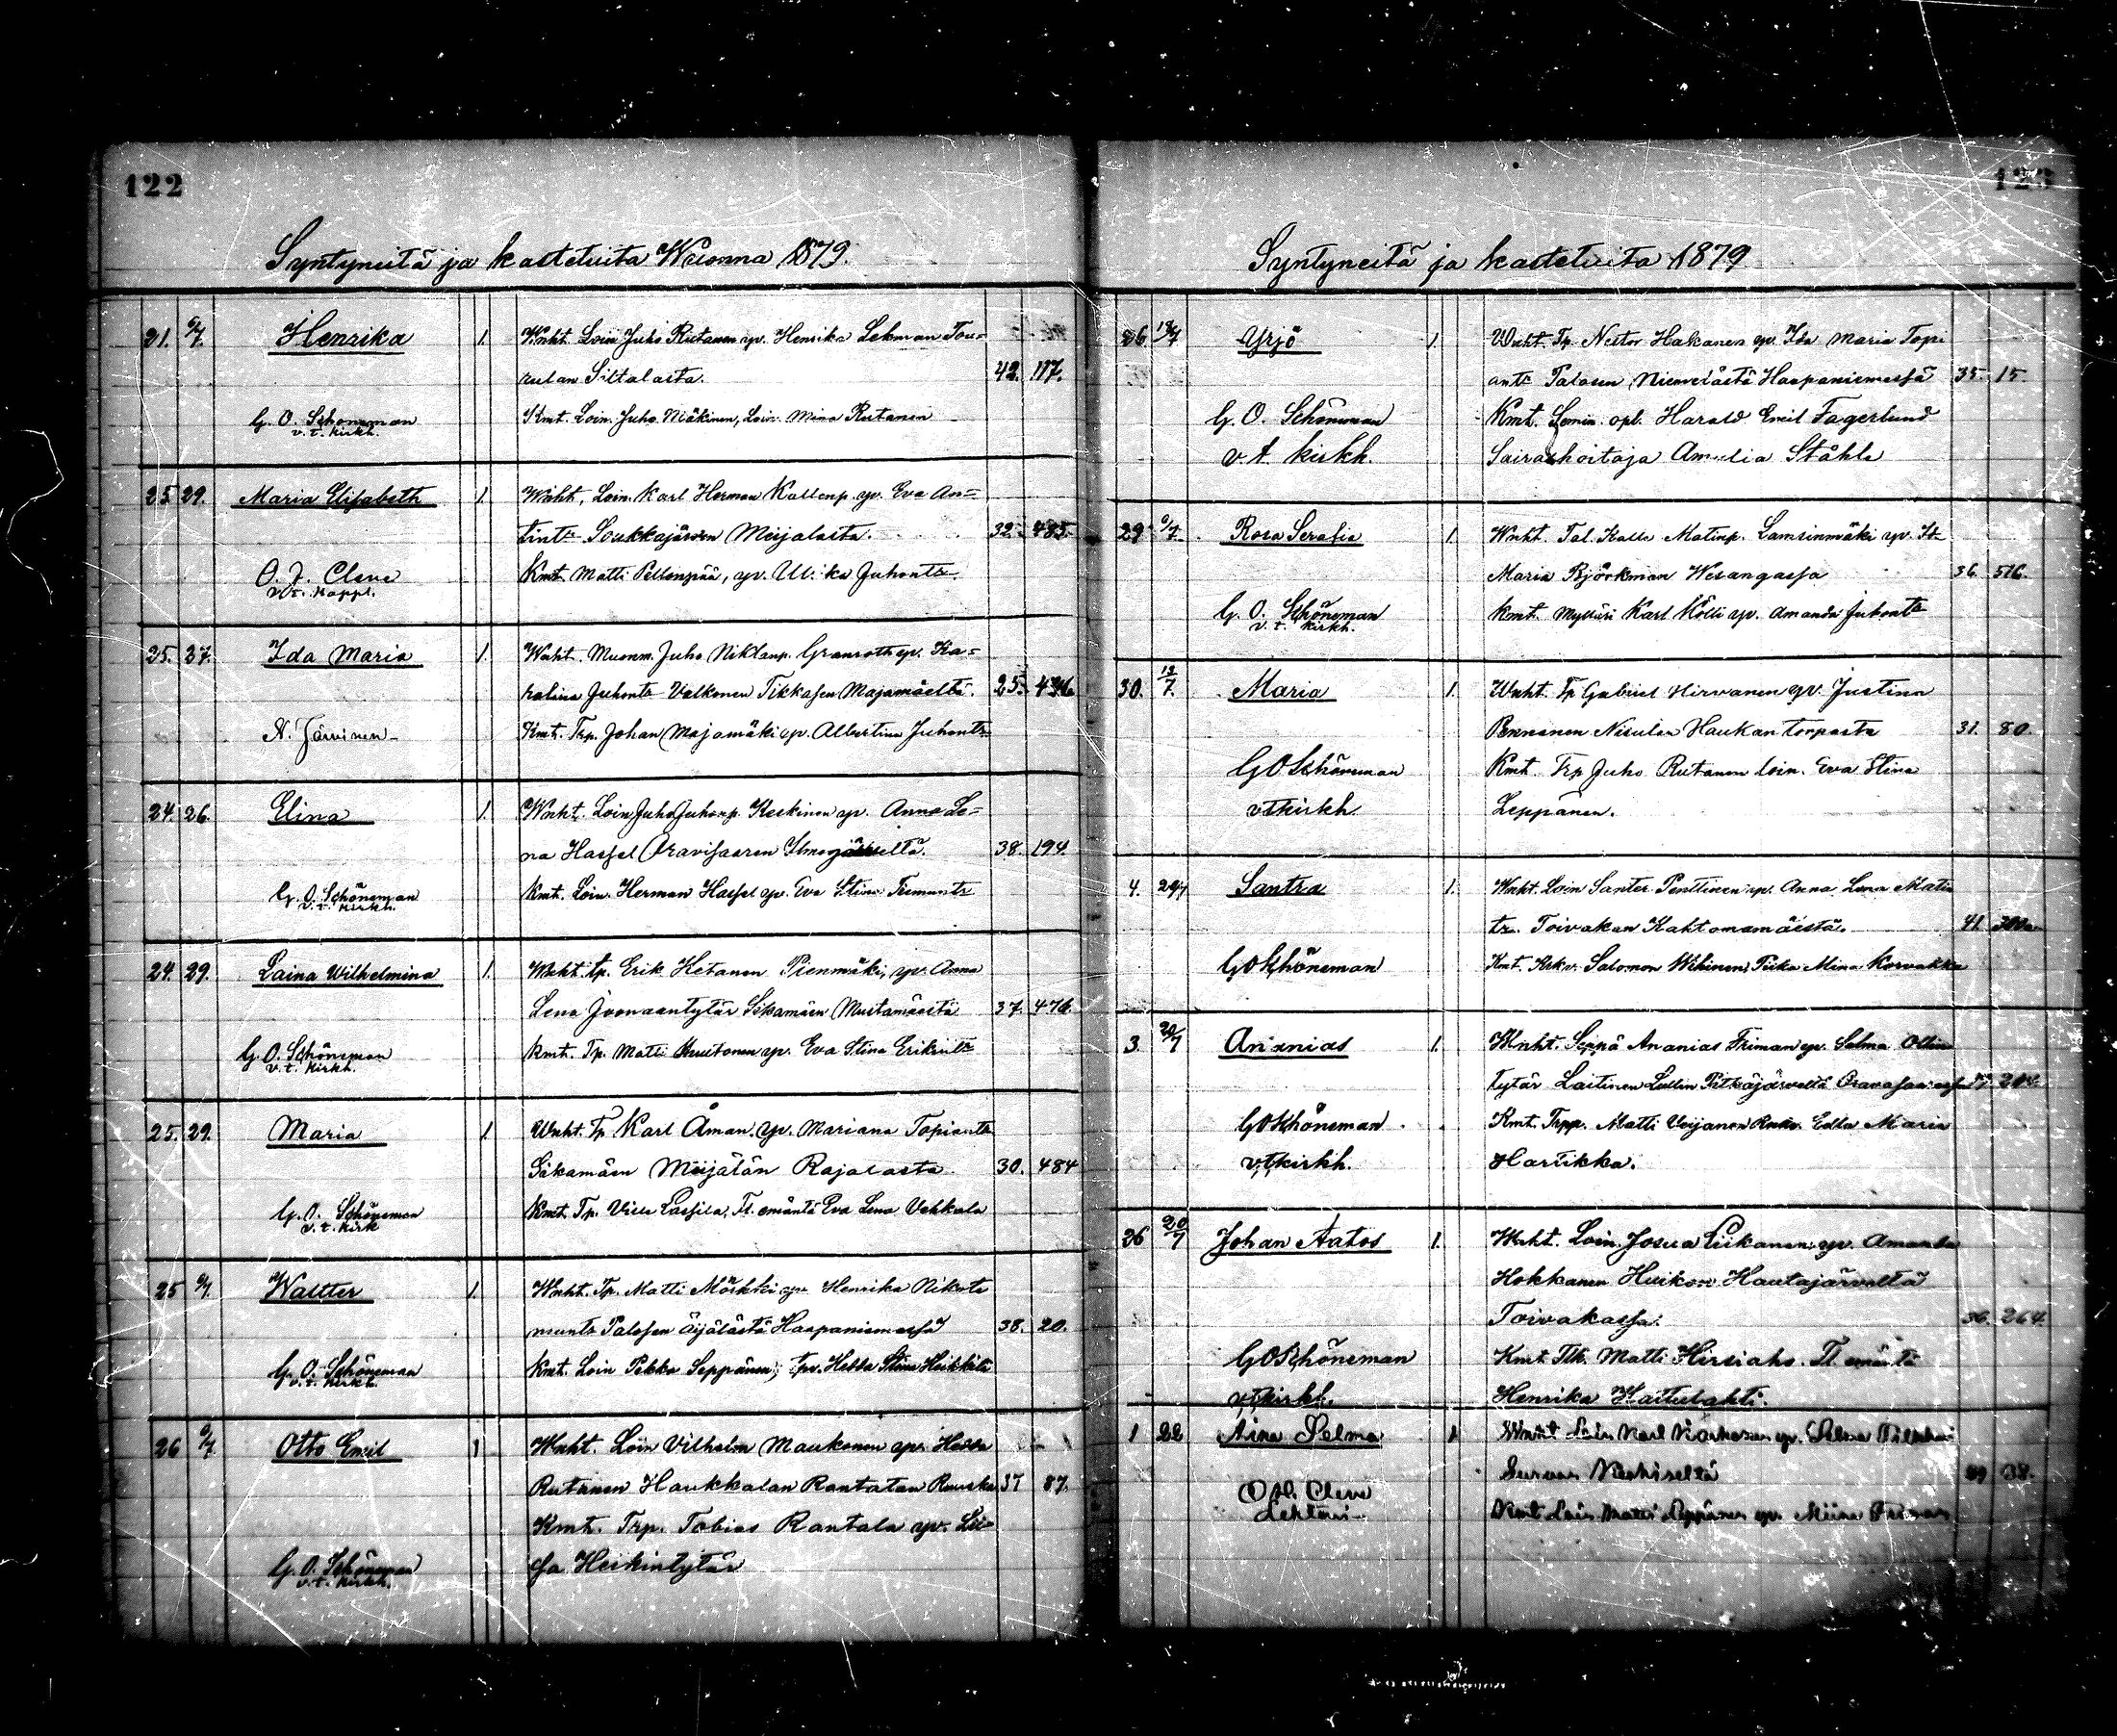 122
Syntyneitä ja kastetuita Wuonna 1879.
21. 6/7. Henrika 1. Wnht. Loin Juho Rutanen vp. Henrika Lekman Tou=
rulan Siltalasta. 42. 117.
G. O. Schöneman Kmt. Loin. Juho Mäkinen, Loin. Mina Rutanen
v. t. kirkh.
25. 29. Maria Elisabeth 1. Wnht. Loin. Karl Herman Kallenp. vp. Eva An=
tint: Soukkajärven Meijalasta. 32. 485.
O. J. Cleve Kmt. Matti Peltonpää, vp. Ulrika Juhontr.
v. t. kappl.
25. 27. Ida Maria 1. Wnht. Muonm. Juho Niklanp. Granroth vp. Ka=
rolina Juhontr Valkonen Tikkasen Majamäeltä. 25.
N. Järvinen Kmt. Trp. Johan Majamäki vp. Albertina Juhontr
24. 26. Elina 1. Wnht. Loin Juho Juhonp. Keskinen vp. Anna Le=
na Hassel Oravisaaren 38. 194.
G. O. Schöneman Kmt. Loin. Herman Hassel vp. Eva Stina
v. t. kirkh.
24. 29. Laina Wilhelmina 1. Wnht. tp. Erik Hetanen Pienmäki, vp. Anna
Lena Joonaantytär Sikamäen Mustamäestä 37. 476.
G. O. Schöneman Kmt. Tp. Matti Huutonen vp. Eva Stina Erikintr
v. t. kirkh.
25. 29. Maria 1. Wnht. Tp Karl Åman. vp. Mariana Topiantr
Sikamäen Meijälän Rajalasta. 30. 484
G. O. Schöneman Kmt. Tp. Ville Lassila, Tl. emäntä Eva Lena Vehkala
v. t. kirk
25 6/7. Waltter 1. Wnht. Tp. Matti Mörkki vp. Henrika
Palosen Äijälästä Haapaniemessä 38. 20.
G. O. Schöneman Kmt. Loin Pekka Seppänen, Hedda Stina Heikkilä
v. t. kirkh.
26 6/7. Otto Emil 1 Wnht. Loin Vilhelm Maukonen vp.
Rutanen Haukkalan Rantalan 37 87.
Kmt. Trp. Tobias Rantala vp. Lii=
G. O. Schöneman sa Heikintytär
v. t. kirkh.
123
Syntyneitä ja kastetuita 1879
26. 13/7 Yrjö 1. Wnht. Tp. Nestor Hakanen vp. Ida Maria Topi
antr Palosen Niemelästä Haapaniemessä 35. 15.
G. O. Schöneman Kmt. Semin. opl. Harald Emil Fagerlund
v. t. kirkh. Sairashoitaja Amalia Ståhle
29. 6/7. Rosa Serafia 1. Wnht. Tal. Kalle Matinp. Lamsinmäki vp.
Maria Björkman Wesangassa 36. 516.
G. O. Schöneman Kmt. Mylläri Karl Kölli vp. Amanda Juhontr
v. t. kirkh.
30. 13/7. Maria 1. Wnht. Tp Gabriel Hirvanen vp. Justina
Pennanen Nisulan Haukantorpasta 31. 80.
G O Schöneman Kmt. Trp Juho Rutanen loin. Eva Stina
vt kirkh. Leppänen.
4. 20/7 Santra 1. Wnht. Loin Santer Penttinen vp. Anna Lena Matin
tr. Toivakan Kahtomamäistä. 41
G O Schöneman Kmt. Salomon Wihinen, Piika Mina Korvakka
3. 20/7 Ananias 1. Wnht. Seppä Ananias Friman vp. Selma Ollin
tytär Laitinen Pitkäjärveltä Oravasaaressa
G O Schöneman Kmt. Trpp. Matti Veijanen Edla Maria
vt kirkh. Harikka.
26 20/7 Johan Aatos 1. Wnht. Loin. Josua Liikanen vp. Amanda
Hokkanen Huikon Hautajärveltä
Toivakassa. 36. 264
G O Schöneman Kmt Tlk. Matti Hirsiaho. Tl emäntä
vt kirkh. Henrika
1 22 Aina Selma 1 Wnht Loin Karl vp. Selma
38.
Cleve Kmt Loin Matti Leppänen vp. Miina
Lehtori